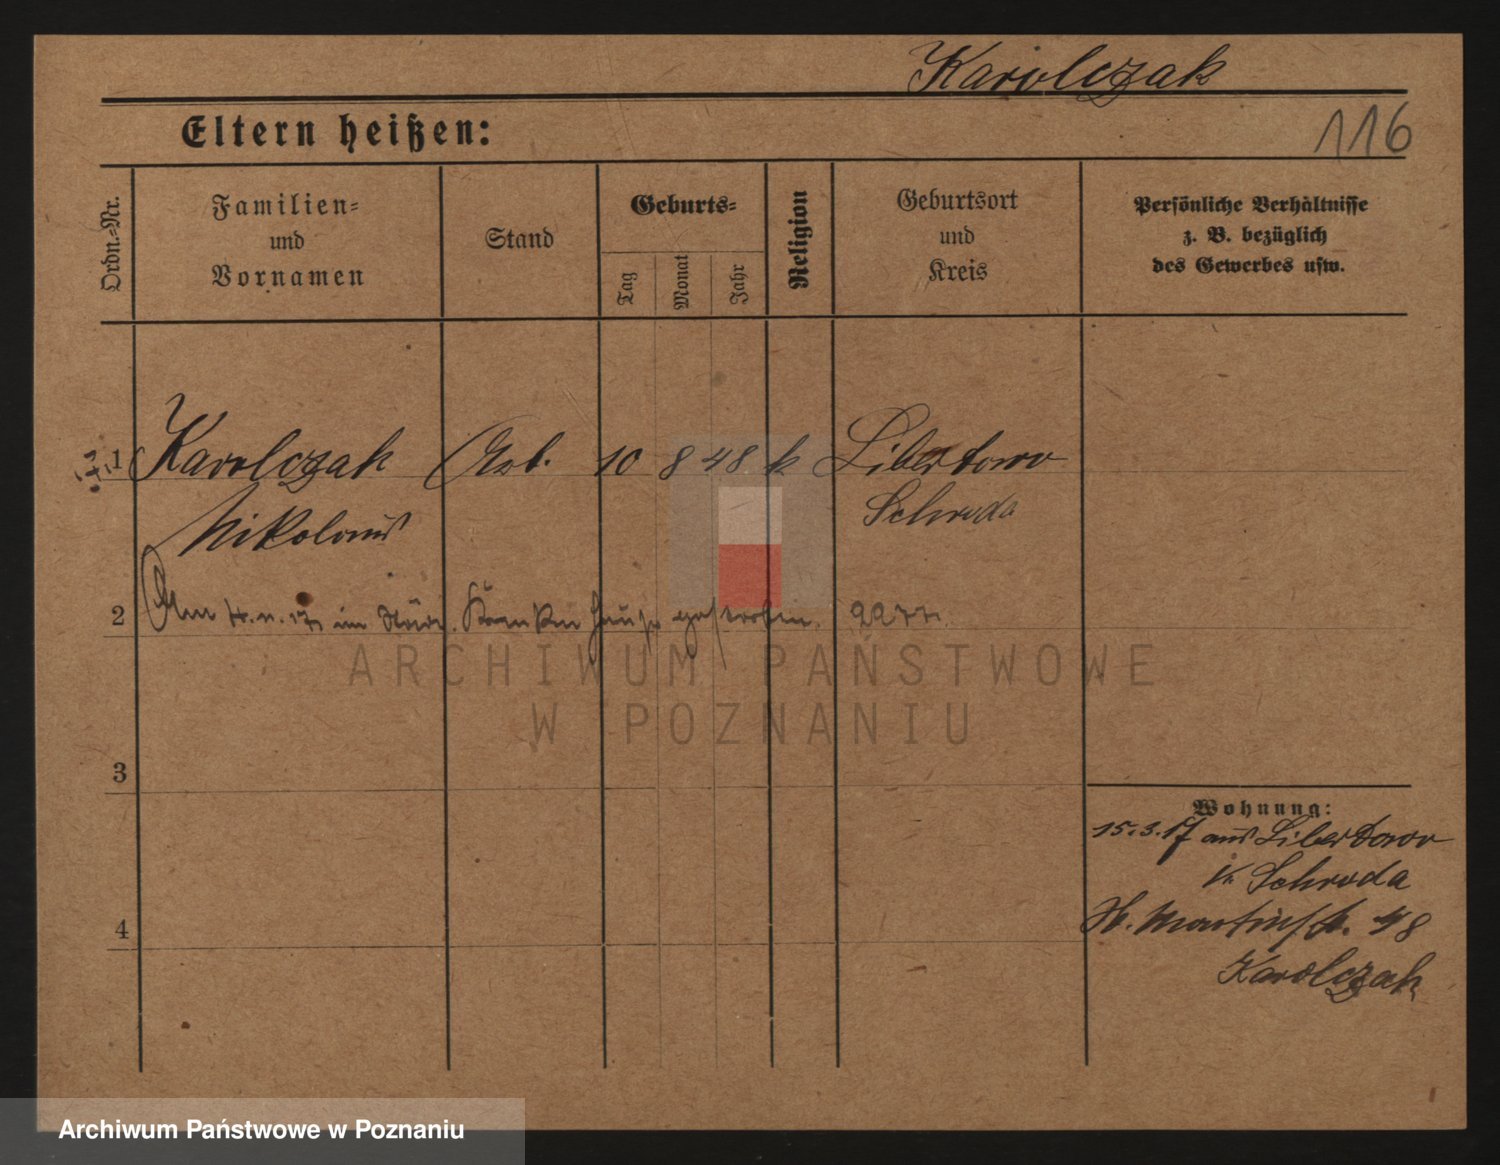 Karolczak
Eltern heißen:
116
Ordn.=Nr.
Familien=
und
Vornamen
Stand
Geburts=
Tag
Monat
Jahr
Religion
Geburtsort
und
Kreis
Persönliche Verhältnisse
z. B. bezüglich
des Gewerbes usw.
1 Karolczak Arb. 10 8 48 k Libertowo
Nikolaus Schroda
2 Am im Städt. Krankenhause gestorben.
ARCHIWUM PAŃSTWOWE
W POZNANIU
3
Wohnung:
15.3.17 aus Libertowo
Kr. Schroda
4 St. Martinstr. 48
Karolczak
Archiwum Państwowe w Poznaniu